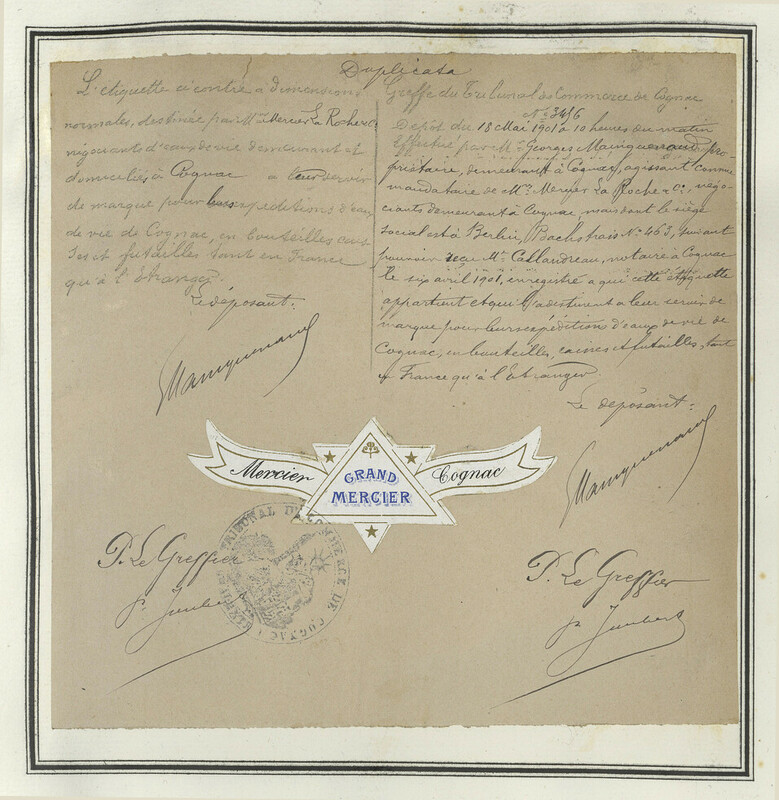 Duplicata
L'etiquette ci contre a dimensions
normales, destinée par Mrs Mercier La Roche & Co
négociants d'eaux de vie demeurant et
domiciliés à Cognac a leur servir
de marque pour leurs expeditions d'eaux
de vie de Cognac, en bouteilles cais
ses et futailles tant en France
qu'à l'Etranger.
Le déposant:
GMauiguenaud
Greffe du Tribunal de Commerce de Cognac
No 3456
Depôt du 18 Mai 1901 à 10 heures du matin
Effectué par Mr Georges Mauiguenaud, pro-
priétaire, demeurant à Cognac, agissant comme
mandataire de Mrs Mercier La Roche & Co, négo-
ciants demeurant à Cognac, mais dont le siège
social est à Berlin, No 463, suivant
pouvoir reçu Me Callandreau, notaire à Cognac
le six avril 1901, enregistré a qui cette étiquette
appartient et qui l'a destinent a leur servir de
marque pour leurs expéditions d'eaux de vie de
Cognac, en bouteilles, caisses et futailles, tant
en France qu'à l'Etranger
Le déposant:
GMauiguenaud
Mercier
GRAND
MERCIER
Cognac
TRIBUNAL DE COMMERCE DE COGNAC
P. Le Greffier
P. Le Greffier